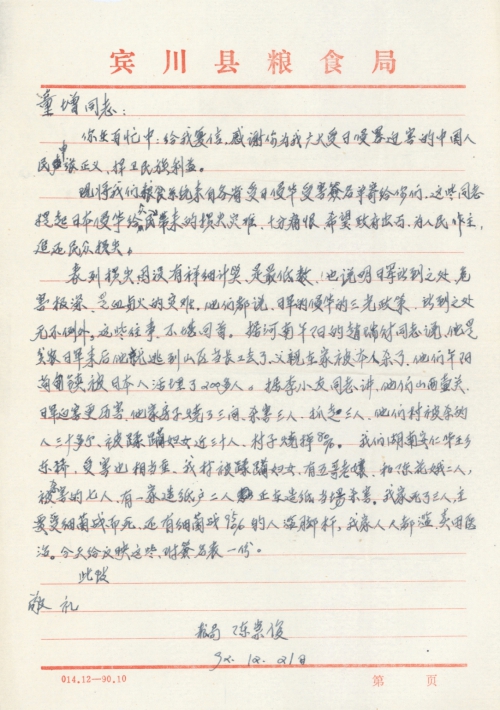 宾川县粮食局
童增同志：
你在百忙中，给我复信，感谢你为我广大受日侵害迫害的中国人
民申张正义，捍卫民族利益。
现将我们粮食系统来自各省受日侵华受害签名单寄给你们，这些同志
提起日本侵华给人民带来的损失灾难，十分痛恨，希望政府出面，为人民作主，
追还民众损失。
表列损失因没有祥细计算，是最低数，也说明日军所到之处，危
害极深，是血与火的灾难，他们都说，日军的侵华的三光政策，所到之处
无不例外，这些往事，不堪回首。据河南 阳的赵瑞 同志说，他是
贫农日军来后他就逃到山区当长工去了，父亲在家被本人杀了，他们 阳
县 被日本人活埋了200多人。据李小友同志讲，他们山西盂关，
日军迫害更历害，他家房子烧了三间，杀害三人，抓起三人，他们村被杀的
人三十多个，被蹂躏妇女近三十人，村子烧掉80%。我们湖南安仁华王乡
东桥，受害也相当重，我村被蹂躏妇女，有 老孃，和陈 娥二人，
被害的七人，有一家造纸户二人正在造纸当场杀害。我家死了三人，主
要受细菌战而死，还有细菌战 %的人 脚杆，我家人人都 ，莫田医
治。今天给反映这些，附签名表一份。
此致
敬礼
我局 陈崇俊
92.12.21日
014.12—90.10
第 页